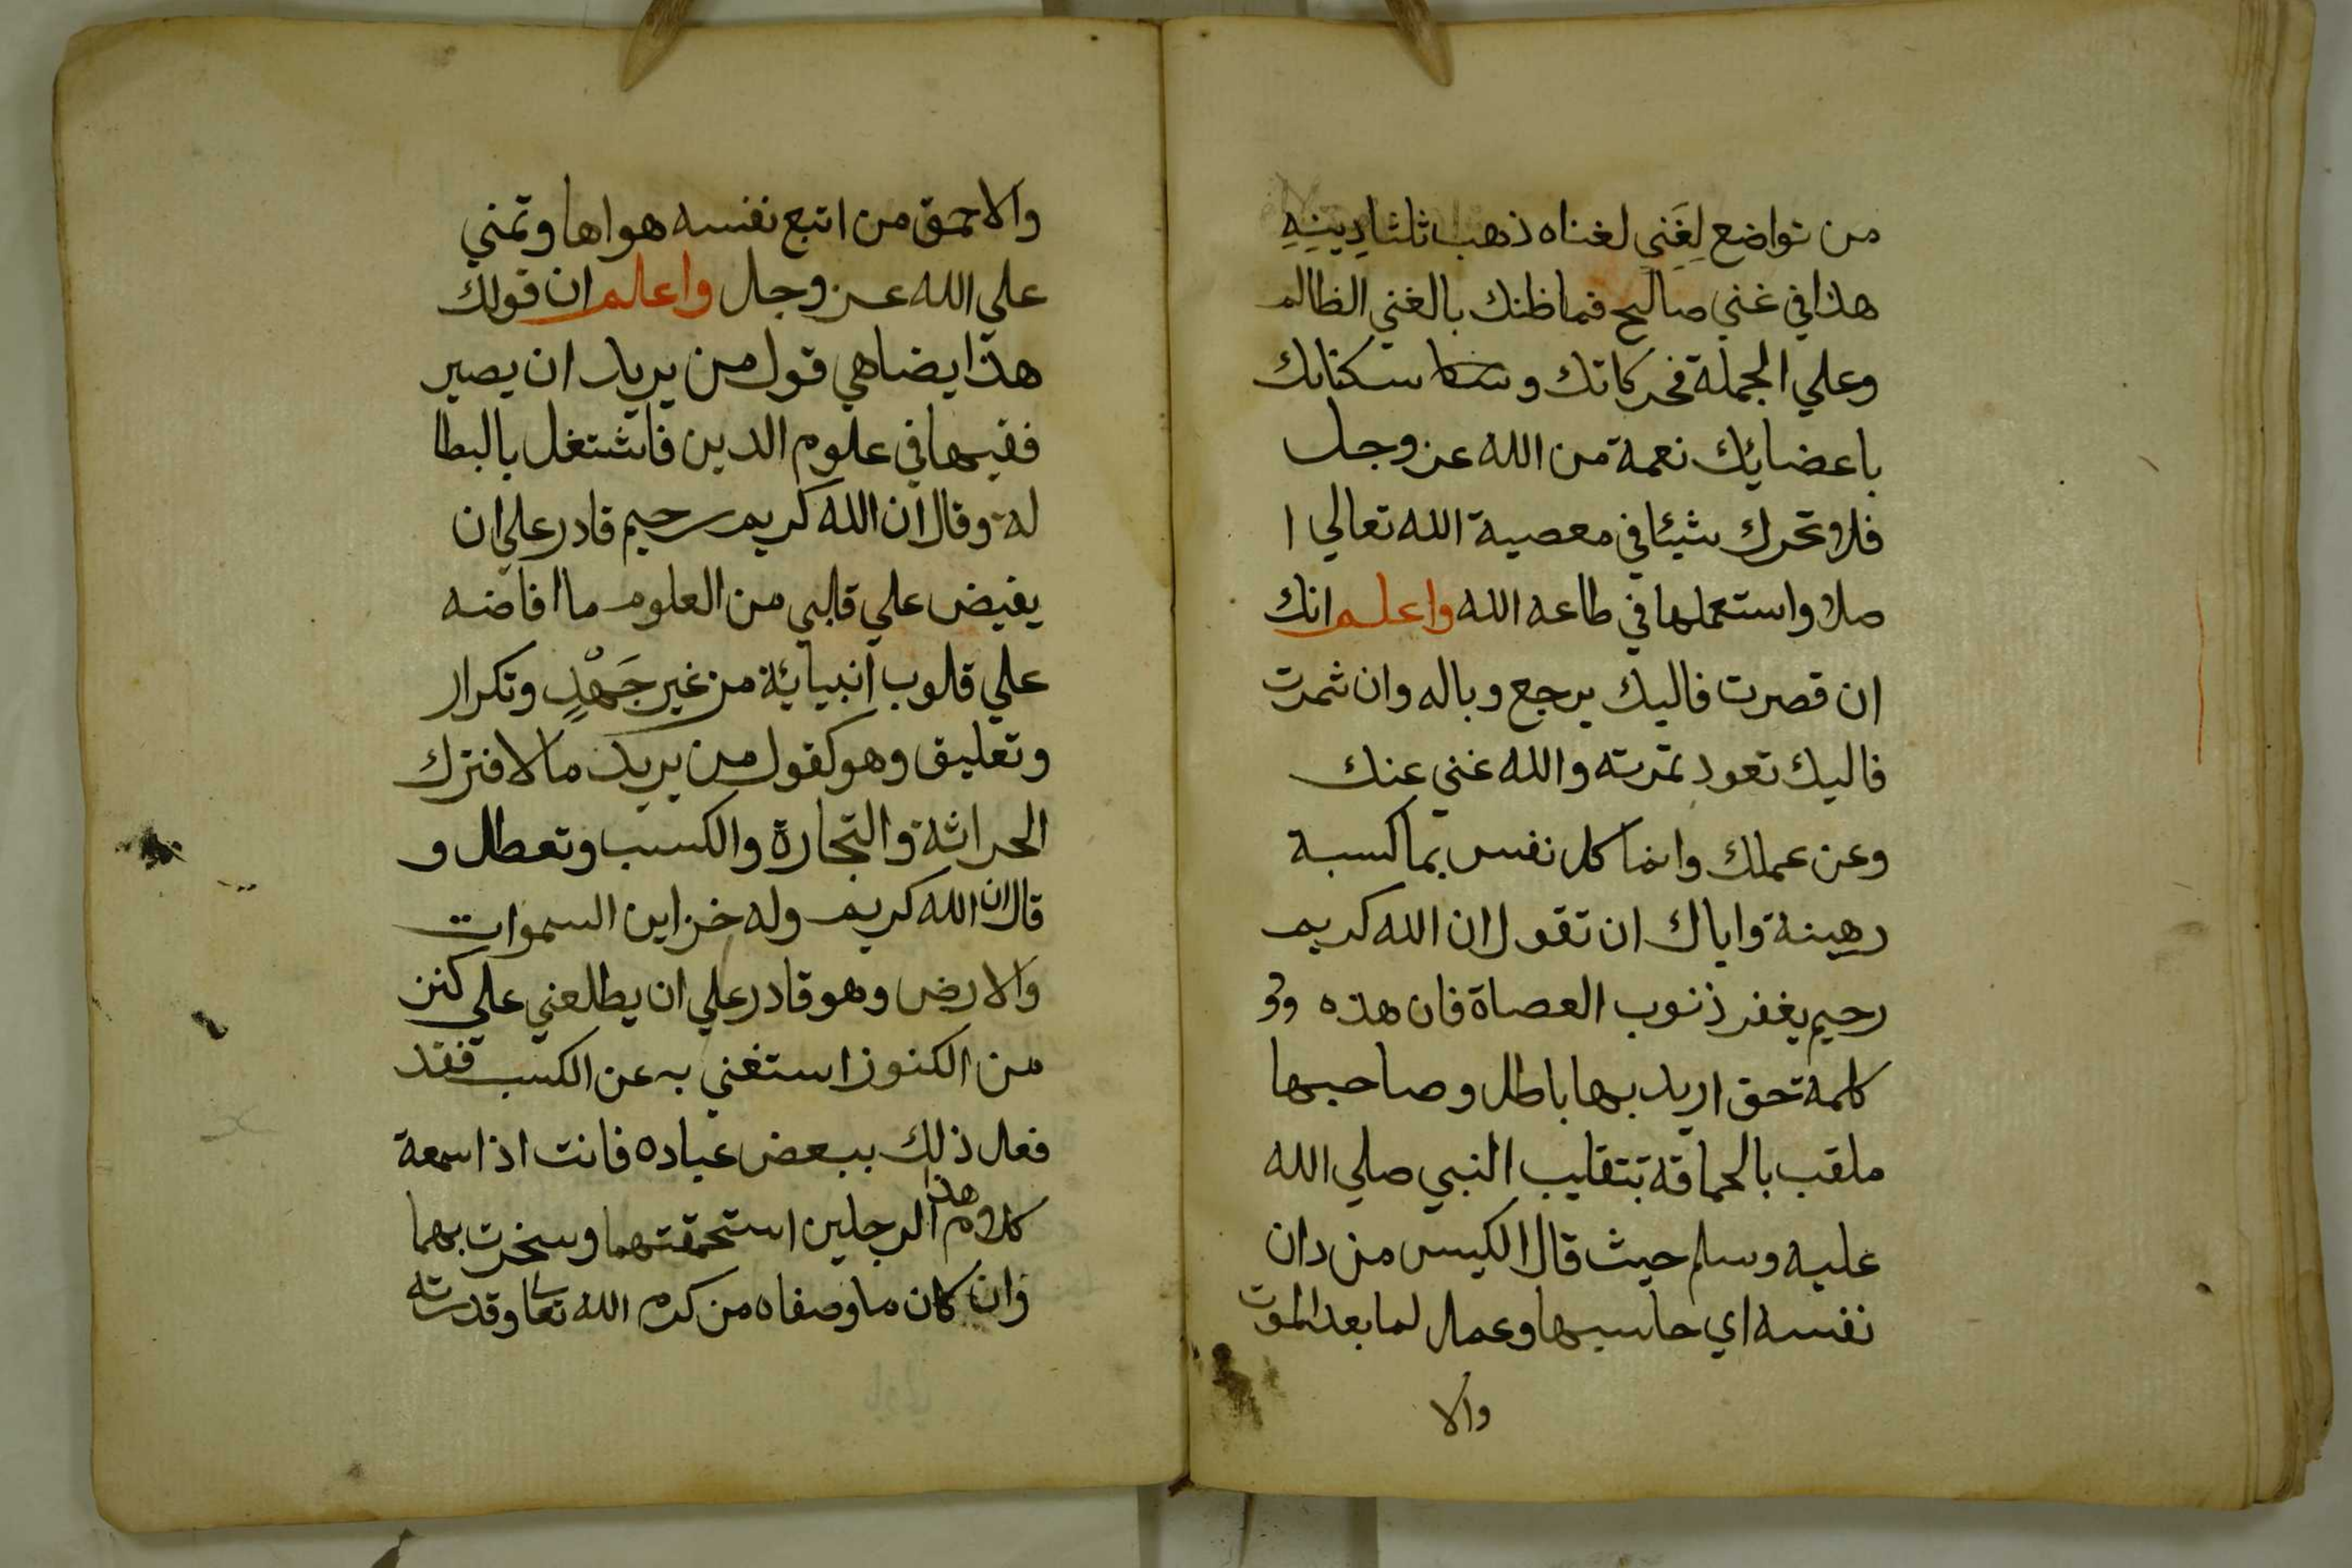 من تواضع لِغَنيِ لغناه ذهب ثلثا دِينِهِ
هذا في غني صالح فما ظنك بالغني الظالم
وعلي الجملة فحركاتك و سكناتك
باعضائك نعمة من الله عز وجل
فلا تحرك شيئا في معصية الله تعالي ا
صلا واستعملها في طاعه الله واعلم انك
ان قصرت فاليك يرجع وباله وان شمرت
فاليك تعود ثمرته والله غني عنك
وعن عملك وانما كل نفس بما كسبة
رهينة واياك ان تقول ان الله كريم
رحيم يغفر ذنوب العصاة فان هذه
كلمة حق اريد بها باطل وصاحبها
ملقب بالحماقة بتقليب النبي صلي الله
عليه وسلم حيث قال الكيس من دان
نفسه اي حاسبها وعمل لما بعد الموت
والا
والاحمق من اتبع نفسه هواها وتمني
علي الله عز وجل واعلم ان قولك
هذا يضاهي قول من يريد ان يصير
فقيها في علوم الدين فاشتغل بالبطا
لة وقال ان الله كريم رحيم قادر علي ان
يفيض علي قلبي من العلوم ما افاضه
علي قلوب انبيائة من غير جَهْدٍ وتكرار
وتعليق وهو كقول من يريد مالا فترك
الحراثة والتجارة والكسب وتعطل و
قال ان الله كريم وله خزاين السموات
والارض وهو قادر علي ان يطلعني علي كنز
من الكنوز استغني به عن الكسب فقد
فعل ذلك ببعض عباده فانت اذا سمعة
كلام هذا الرجلين استحمقتهما وسخرت بهما
وان كان ما وصفاه من كرم الله تعا وقدرته